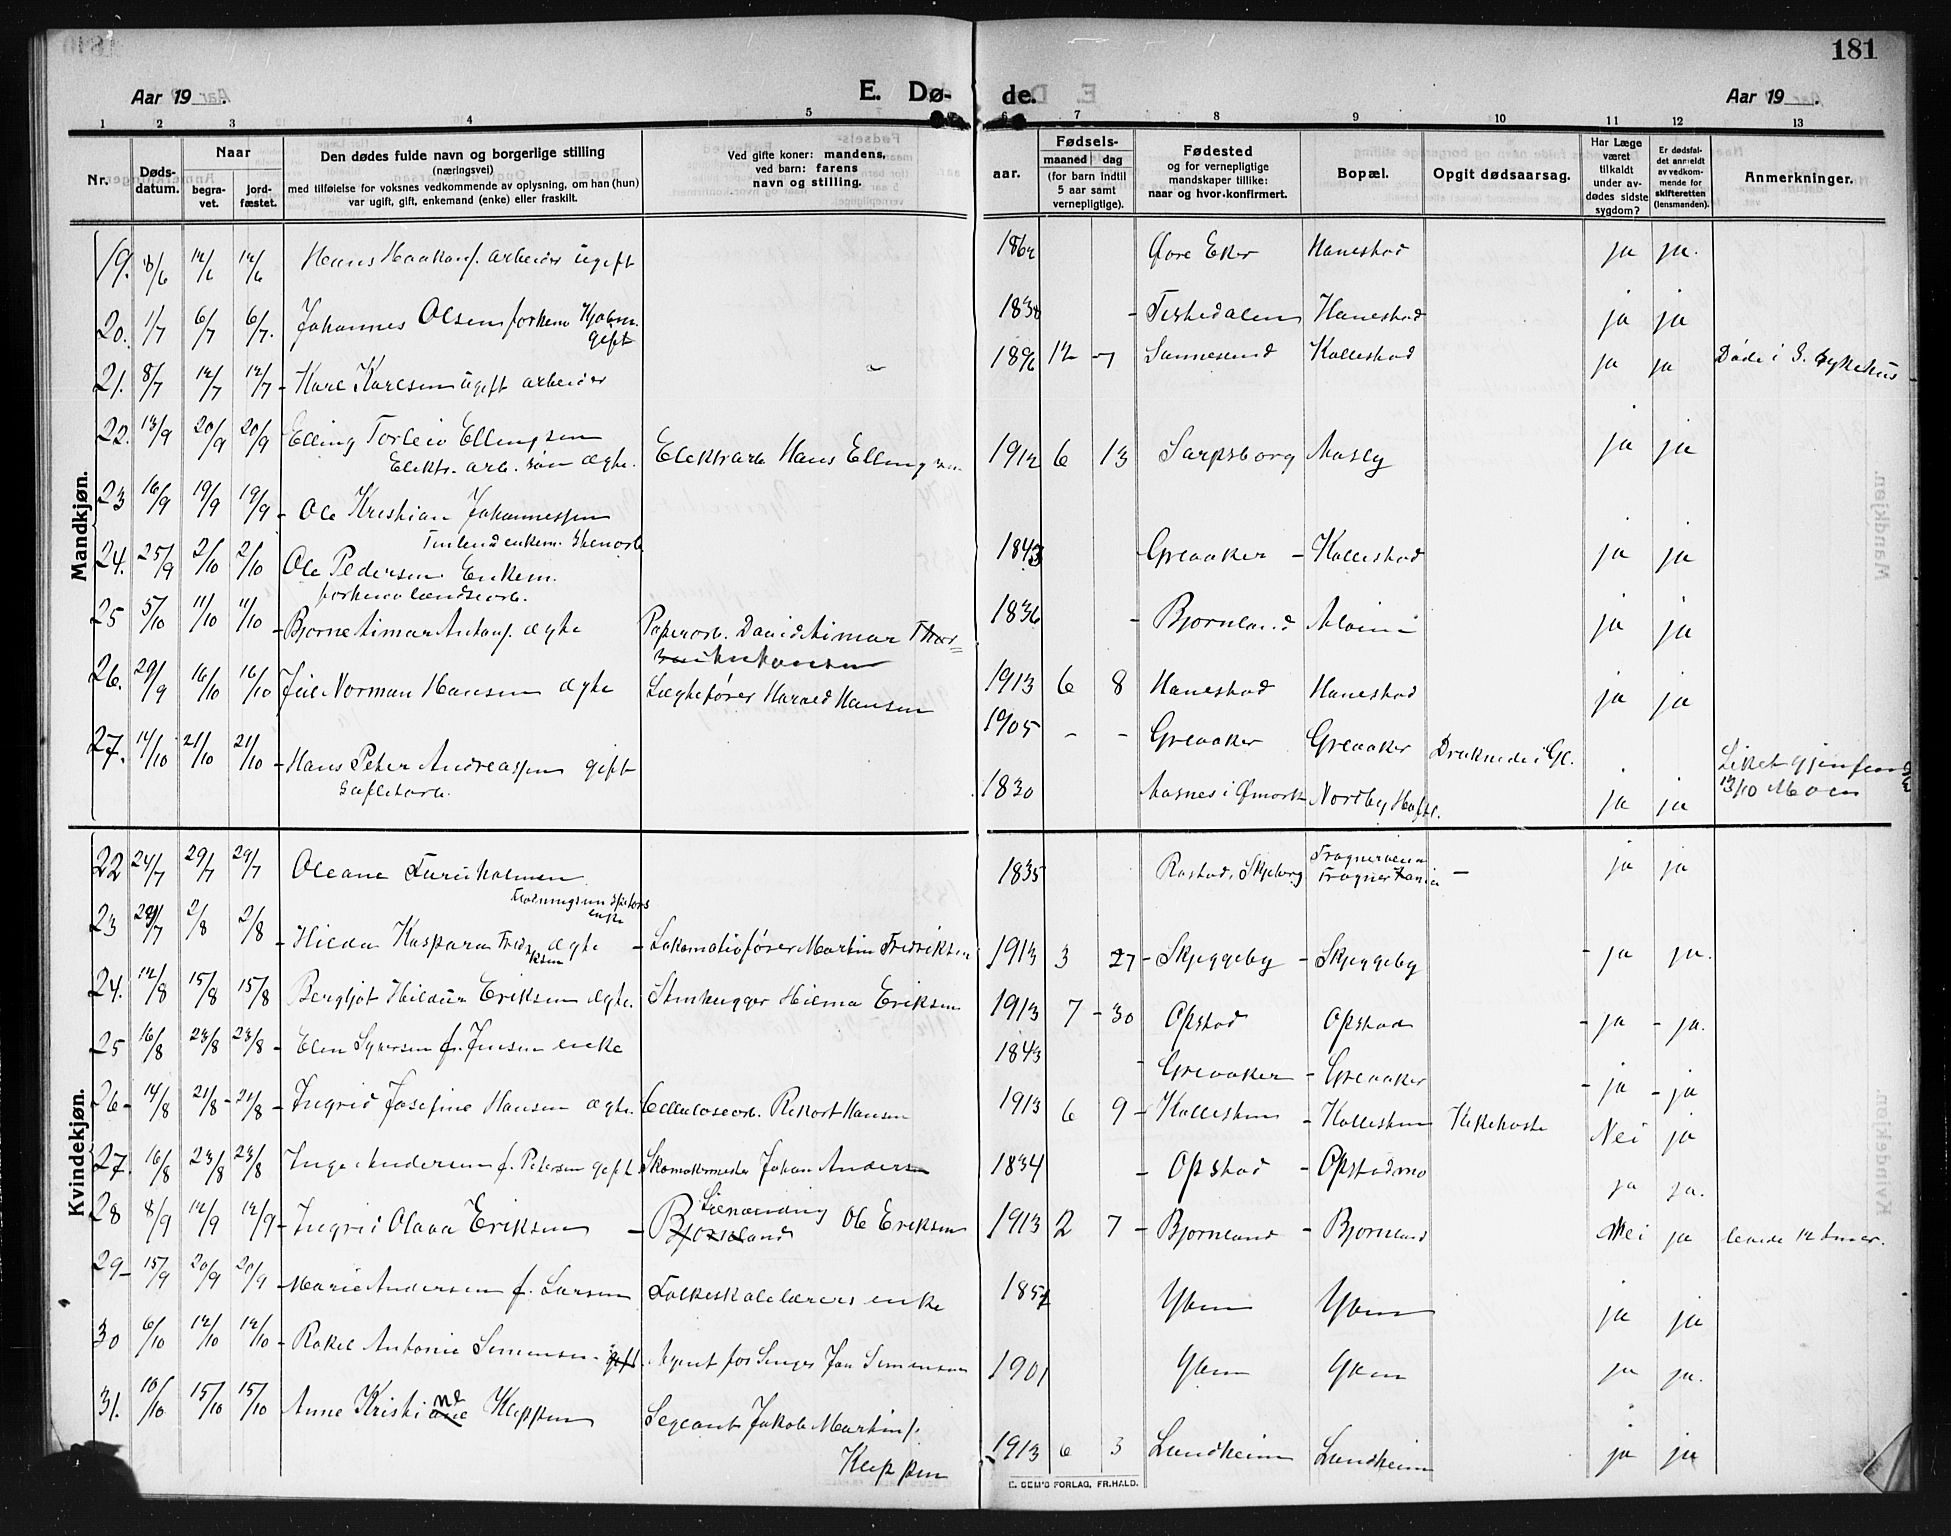 181
Aar 19 .
E. Dø-
de.
Aar 19 .
1 2 3 4 5 6 7 8 9 10 11 12 13
Nr.
Døds-
datum.
Naar
begra-
vet.
jord-
fæstet.
Den dødes fulde navn og borgerlige stilling
(næringsvei)
med tilføielse for voksnes vedkommende av oplysning, om han (hun)
var ugift, gift, enkemand (enke) eller fraskilt.
Ved gifte koner: mandens,
ved barn: farens
navn og stilling.
Fødsels-
aar.
maaned dag
(for barn indtil
5 aar samt
vernepligtige).
Fødested
og for vernepligtige
mandskaper tillike:
naar og hvor konfirmert.
Bopæl.
Opgit dødsaarsag.
Har Læge
været
tilkaldt
under av-
dødes sidste
sygdom?
Er dødsfal-
det anmeldt
av vedkom-
mende for
skifteretten
(lensmanden).
Anmerkninger.
Mandkjøn.
19. 8/6 12/6 12/6 Hans Haakons. arbeider ugift 1862 Øvre Eker Hanestad ja ja.
20. 1/7 6/7 6/7. Johannes Olsen forhenv
gift 1838 - Tistedalen Hanestad ja ja
21. 8/7 12/7 12/7 - Karl Karlsen ugift arbeider 1896 12 - 7 Sannesund Kallestad ja ja Døde i S. Sykehus
22. 13/9 20/9 20/9 - Elling Torleiv Ellingsen
Elektr. arb. søn ægte. Elektrarb Hans Ellingsen 1912 6 13 Sarpsborg Aasly ja ja
23 16/9 19/9 19/9 - Ole Kristian Johannessen
enkem. 1843 Greaaker - Kallestad ja ja
24. 25/9 2/10 2/10 Ole Pedersen Enkem.
forhenv 1836 - Bjørnland Alvim ja ja
25 5/10 11/10 11/10 - Bjarne Aimar Antons. ægte Papirarb. David Aimar
1913 6 8 Hanestad Hanestad ja ja
26. 29/9 16/10 16/10 Jul Norman Hansen ægte Lægtefører Harald Hansen 1905 - - Greaaker Greaaker Druknede i Gl. ja
27. 14/10 21/10 21/10 - Hans Peter Andreassen gift
1830 Aasnes i Ømark Nordby ja ja
Liket gjenfun
13/10 Moen
Kvindekjøn.
22 24/7 29/7 29/7 Oleane Furuholmen
enke 1835 Rostad i Skjeberg - ja ja
23 29/7 2/8 2/8 - Hilda Kaspara Fredriksen ægte - Lokomotivfører Martin Fredriksen 1913 3 27 - Skjeggeby - Skjeggeby - ja ja.
24. 12/8 15/8 15/8 Bergljot Hildur Eriksen ægte. Stenhugger Hilmar Eriksen 1913 7 - 30 Opstad Opstad - ja - ja.
25 16/8 23/8 23/8 - Elen Syversen f. Jensen enke 1843 - Greaaker - Greaaker - ja - ja
26 - 14/8 21/8 - 21/8 - Ingrid Josefine Hansen ægte. Cellulosearb. Rikart Hansen 1913 6 9 - Kallestun - Kallestun Kikehoste Nei ja
27. 16/8 23/8 23/8 - Inge Andersen f. Petersen gift Skomakermester Johan Andersen 1834 - Opstad - Opstadmo ja ja.
28 8/9 12/9 12/9 - Ingrid Olava Eriksen - Bjørnland Ole Eriksen 1913 2 7 - Bjørnland - Bjørnland Nei ja levede 12 timer.
29 - 15/9 20/9 20/9 - Marie Andersen f. Larsen Folkeskolelærers enke 1852 Yven Yven ja ja
30 6/10 12/10 12/10 - Rakel Antonie Simensen - gift. Agent for Singer Jon Simensen 1901 Yven Yven ja ja.
31. 10/10 15/10 15/10 Anne Kristiane Kleppen Sergeant Jakob Martins.
Kleppen 1913 6 3 Lundheim Lundheim ja ja
E. SEM'S FORLAG, FR.HALD.